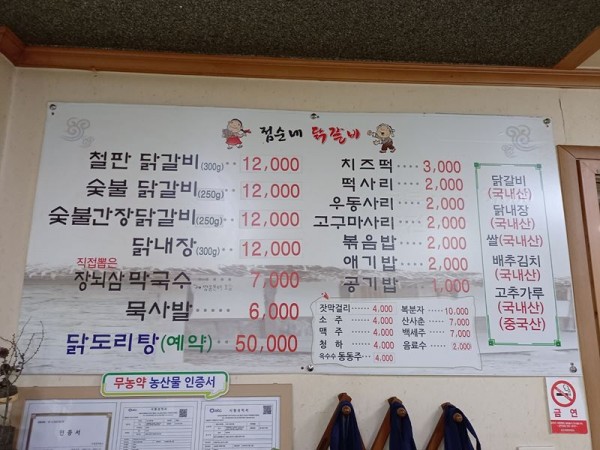 점순네 닭갈비
철판 닭갈비(300g)·· 12,000
숯불 닭갈비(250g)·· 12,000
숯불간장닭갈비(250g)·· 12,000
닭내장(300g)·· 12,000
직접뽑은
장뇌삼 막국수·· 7,000
묵사발····· 6,000
닭도리탕(예약)·· 50,000
치즈떡···· 3,000
떡사리···· 2,000
우동사리··· 2,000
고구마사리·· 2,000
볶음밥···· 2,000
애기밥···· 2,000
공기밥···· 1,000
잣막걸리····· 4,000
소 주····· 4,000
맥 주····· 4,000
청 하····· 4,000
옥수수 동동주·· 4,000
복분자···· 10,000
산사춘···· 7,000
백세주···· 7,000
음료수···· 2,000
닭갈비
(국내산)
닭내장
(국내산)
쌀(국내산)
배추김치
(국내산)
고추가루
(국내산)
(중국산)
무농약 농산물 인증서
인 증 서
금 연